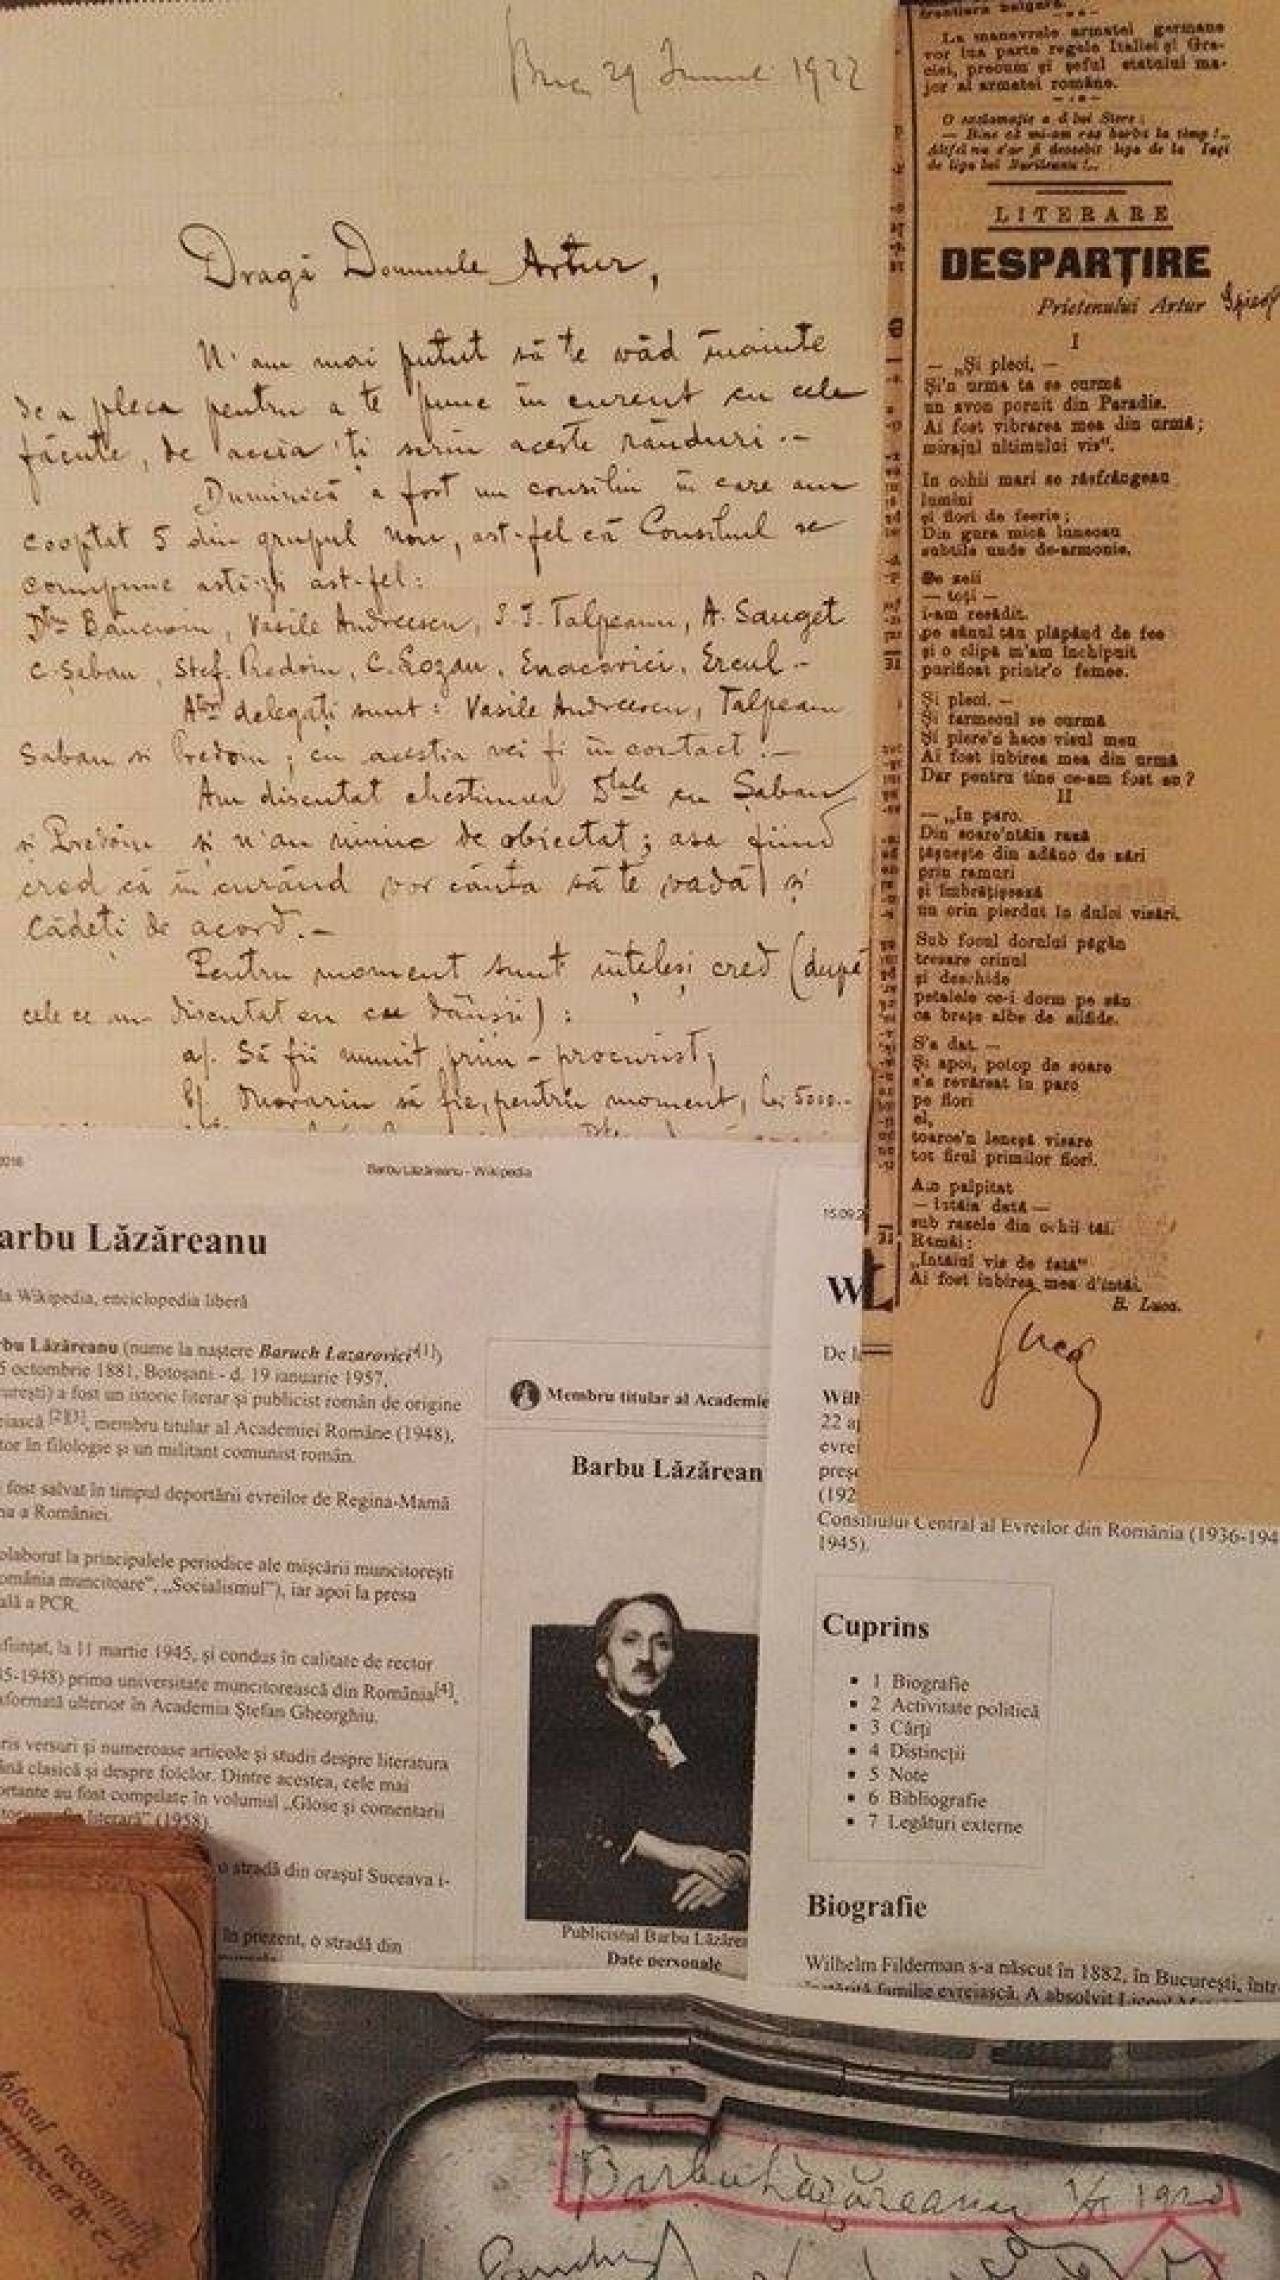 Buc 29 Iunie 1922
Dragă Domnule Artur,
N'am mai putut să te văd înainte
de a pleca pentru a te pune în curent cu cele
făcute, de aceia 'ți scriu aceste rânduri.-
Duminică a fost un consiliu în care am
cooptat 5 din grupul nou, ast-fel că Consiliul se
compune astă-zi ast-fel:
Vasile Andreescu, I. I. Talpeanu, A. Sauget
C. Șaban, Stef. Predoiu, C. Enacovici, Ercul -
delegați sunt: Vasile Andreescu, Talpeanu
Saban si Predoiu; cu acestia vei fi în contact.-
Am discutat chestiunea cu Șaban
și Predoiu și n'au nimic de obiectat; asa fiind
cred că în curând vor căuta să te vadă și
cădeți de acord.-
Pentru moment sunt înțeleși cred (după
cele ce am discutat cu dânșii):
a/. Să fii numit prim-procurist;
b/. să fie, pentru moment, lei 5000.-
frontiera bulgară.
La manevrele armatei germane
vor lua parte regele Italiei și Gre-
ciei, precum și șeful statului ma-
jor al armatei române.
O exclamație a d lui Stere:
— Bine că mi-am ras barba la timp!..
Altfel nu s'ar fi deosebit lipa de la Iași
de lipa lui
LITERARE
DESPARȚIRE
Prietenului Artur
I
— „Și pleci, —
Și'n urma ta se curmă
un svon pornit din Paradis.
Ai fost vibrarea mea din urmă;
mirajul ultimului vis".
In ochii mari se răsfrângeau
lumini
și flori de feerie;
Din gura mică lunecau
subtile unde de-armonie.
De zeii
— toți —
i-am resădit.
pe sânul tău plăpând de fee
și o clipă m'am închipuit
purificat printr'o femee.
Și pleci. —
Și farmecul se curmă
Și piere'n haos visul meu
Ai fost iubirea mea din urmă
Dar pentru tine ce-am fost eu?
II
— „In parc.
Din soare'ntâia rază
țâșnește din adânc de zări
prin ramuri
și îmbrățișează
un crin pierdut în dulci visări.
Sub focul dorului păgân
tresare crinul
și deschide
petalele ce-i dorm pe sân
ca brațe albe de silfide.
S'a dat. —
Și apoi, potop de soare
s'a revărsat în parc
pe flori
el,
toarce'n leneșă visare
tot firul primilor flori.
Am palpitat
— întâia dată —
sub razele din ochii tăi.
Rămâi:
„Intâiul vis de fată"
Ai fost iubirea mea d'intâi.
B. Luca.
Luca
2016
Barbu Lăzăreanu - Wikipedia
arbu Lăzăreanu
la Wikipedia, enciclopedia liberă
rbu Lăzăreanu (nume la naștere Baruch Lazarovici[1])
5 octombrie 1881, Botoșani - d. 19 ianuarie 1957,
urești) a fost un istoric literar și publicist român de origine
iască [2][3], membru titular al Academiei Române (1948),
tor în filologie și un militant comunist român.
fost salvat în timpul deportării evreilor de Regina-Mamă
na a României.
olaborat la principalele periodice ale mișcării muncitorești
omânia muncitoare", „Socialismul"), iar apoi la presa
ală a PCR.
ființat, la 11 martie 1945, și condus în calitate de rector
45-1948) prima universitate muncitorească din România[4],
sformată ulterior în Academia Ștefan Gheorghiu.
ris versuri și numeroase articole și studii despre literatura
ână clasică și despre folclor. Dintre acestea, cele mai
ortante au fost compilate în volumul „Glose și comentarii
literară" (1958).
o stradă din orașul Suceava i-
în prezent, o stradă din
Membru titular al Academie
Barbu Lăzărean
Publicistul Barbu Lăzărea
Date personale
15.09.2
W
De la
Wilh
22 ap
evrei
preșe
(192
Consiliului Central al Evreilor din România (1936-194
1945).
Cuprins
1 Biografie
2 Activitate politică
3 Cărți
4 Distincții
5 Note
6 Bibliografie
7 Legături externe
Biografie
Wilhelm Filderman s-a născut în 1882, în București, într-
familie evreiască. A absolvit Liceul
reconstituit
Barbu Lăzăreanu